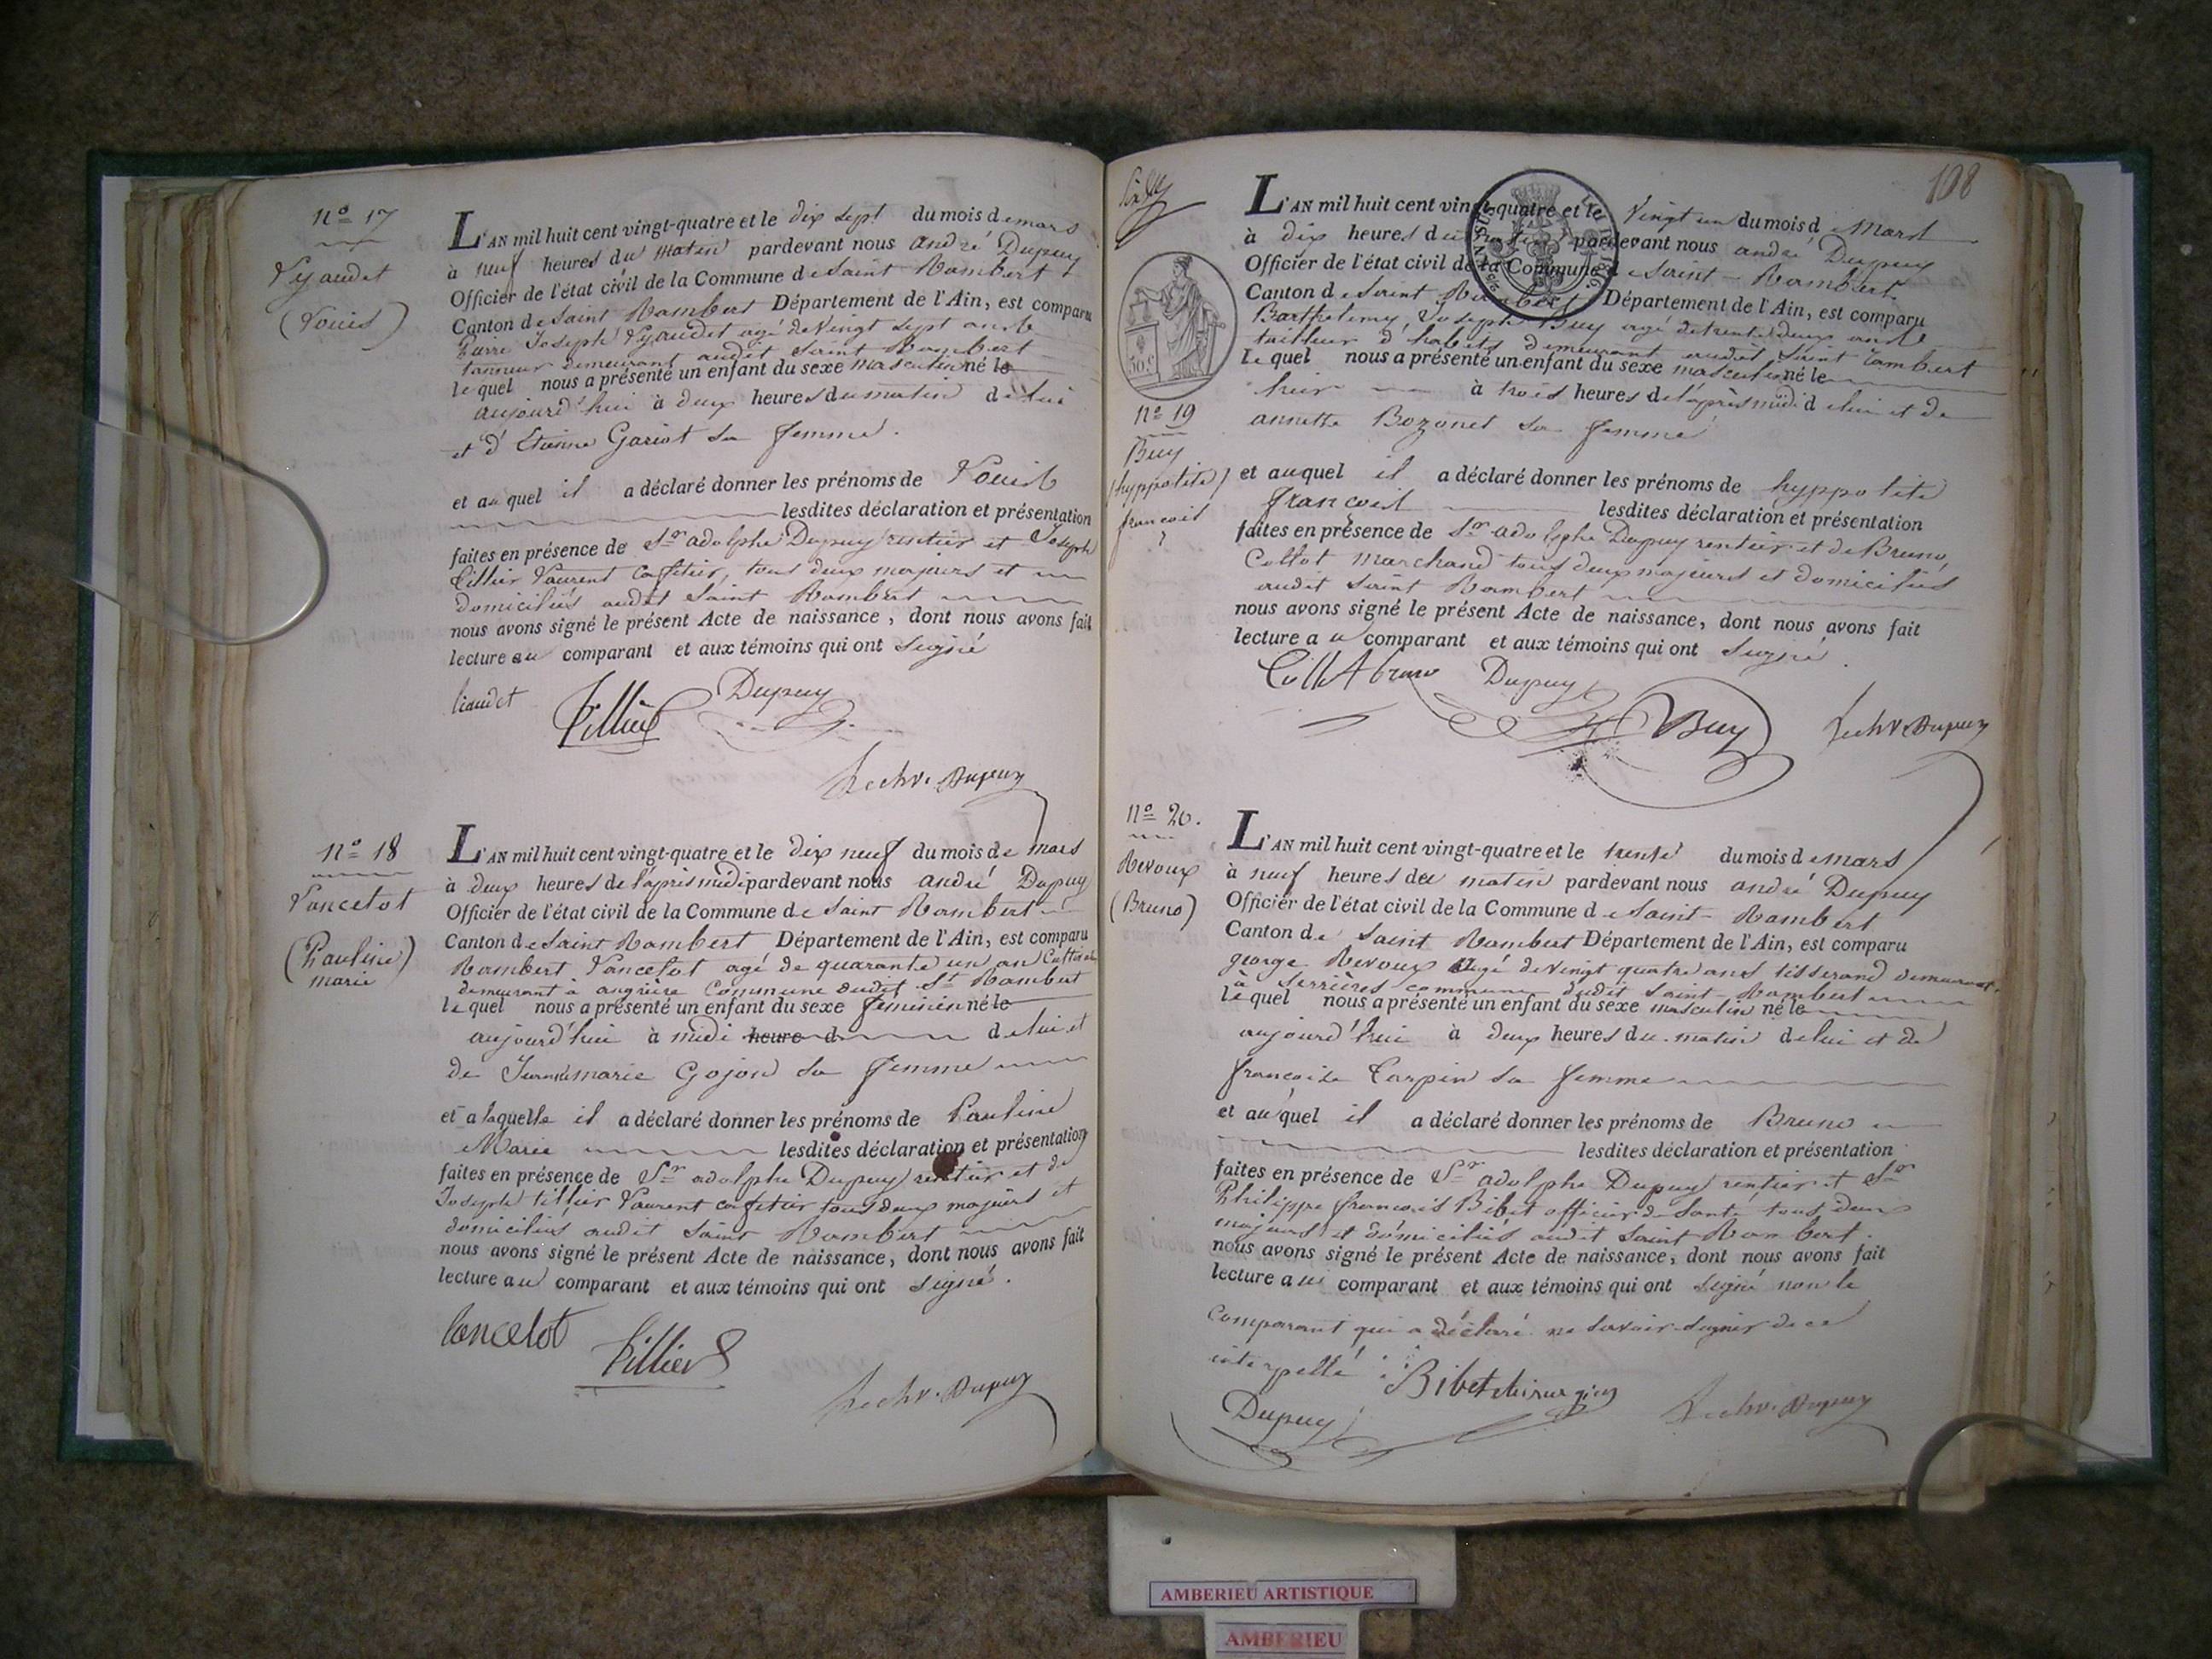 nº 17
Vyaudet
(Louis)
L'AN mil huit cent vingt-quatre et le dix sept du mois de mars
à neuf heures du matin pardevant nous andré Dupuy
Officier de l'état civil de la Commune de Saint Rambert
Canton de Saint Rambert Département de l'Ain, est comparu
Pierre Joseph Vyaudet agé de Vingt sept ans
tanneur demeurant audit Saint Rambert
le quel nous a présenté un enfant du sexe masculin né le
aujourd'hui à deux heures du matin de lui
et d' Etienne Gariot sa femme.
et au quel il a déclaré donner les prénoms de Louis
lesdites déclaration et présentation
faites en présence de Sr adolphe Dupuy rentier et Joseph
Tillier Laurent cafetier, tous deux majeurs et
domiciliés audit Saint Rambert
nous avons signé le présent Acte de naissance, dont nous avons fait
lecture au comparant et aux témoins qui ont signé
liaudet Tillier Dupuy
Dupuy
nº 18
Lancelot
(Pauline)
marie
L'AN mil huit cent vingt-quatre et le dix neuf du mois de mars
à deux heures de l'après midi pardevant nous andré Dupuy
Officier de l'état civil de la Commune de Saint Rambert
Canton de Saint Rambert Département de l'Ain, est comparu
Rambert Lancelot agé de quarante un an
demeurant a angrière Commune dudit St Rambert
le quel nous a présenté un enfant du sexe féminin né le
aujourd'hui à midi heure d de lui et
de marie Gojon sa femme
et a laquelle il a déclaré donner les prénoms de Pauline
Marie lesdites déclaration et présentation
faites en présence de Sr adolphe Dupuy rentier et de
Joseph tillier Laurent cafetier tous deux majeurs et
domiciliés audit Saint Rambert
nous avons signé le présent Acte de naissance, dont nous avons fait
lecture au comparant et aux témoins qui ont signé.
lancelot Tillier
Dupuy
108
50 c
nº 19
Buy
(hyppolite)
francois
L'AN mil huit cent vingt-quatre et le Vingt un du mois de Mars
à dix heures du matin pardevant nous andré Dupuy
Officier de l'état civil de la Commune de Saint-Rambert
Canton de Saint Rambert Département de l'Ain, est comparu
Barthelemy Joseph Buy agé de trente deux ans
tailleur d'habits demeurant audit Saint rambert
le quel nous a présenté un enfant du sexe masculin né le
hier à trois heures de l'après midi de lui et de
annette Bozonet sa femme
et au quel il a déclaré donner les prénoms de hyppolite
françois lesdites déclaration et présentation
faites en présence de Sr adolphe Dupuy rentier et de Bruno
Collot marchand tous deux majeurs et domiciliés
audit Saint Rambert
nous avons signé le présent Acte de naissance, dont nous avons fait
lecture au comparant et aux témoins qui ont signé.
Collot bruno Dupuy
Buy Dupuy
nº 20.
Revoux
(Bruno)
L'AN mil huit cent vingt-quatre et le trente du mois de mars
à neuf heures du matin pardevant nous andré Dupuy
Officier de l'état civil de la Commune de Saint-Rambert
Canton de Saint Rambert Département de l'Ain, est comparu
george Revoux agé de Vingt quatre ans tisserand demeurant
à Serrières commune dudit Saint-Rambert
le quel nous a présenté un enfant du sexe masculin né le
aujourd'hui à deux heures du matin de lui et de
francoise Carpin sa femme
et au quel il a déclaré donner les prénoms de Bruno
lesdites déclaration et présentation
faites en présence de Sr adolphe Dupuy rentier et Sr
Philippe francois Bibet officier de Santé tous deux
majeurs et domiciliés audit Saint Rambert.
nous avons signé le présent Acte de naissance, dont nous avons fait
lecture au comparant et aux témoins qui ont signé non le
comparant qui a déclaré ne Savoir Signer de ce
interpellé. Bibet chirurgien
Dupuy Dupuy
AMBERIEU ARTISTIQUE
AMBERIEU